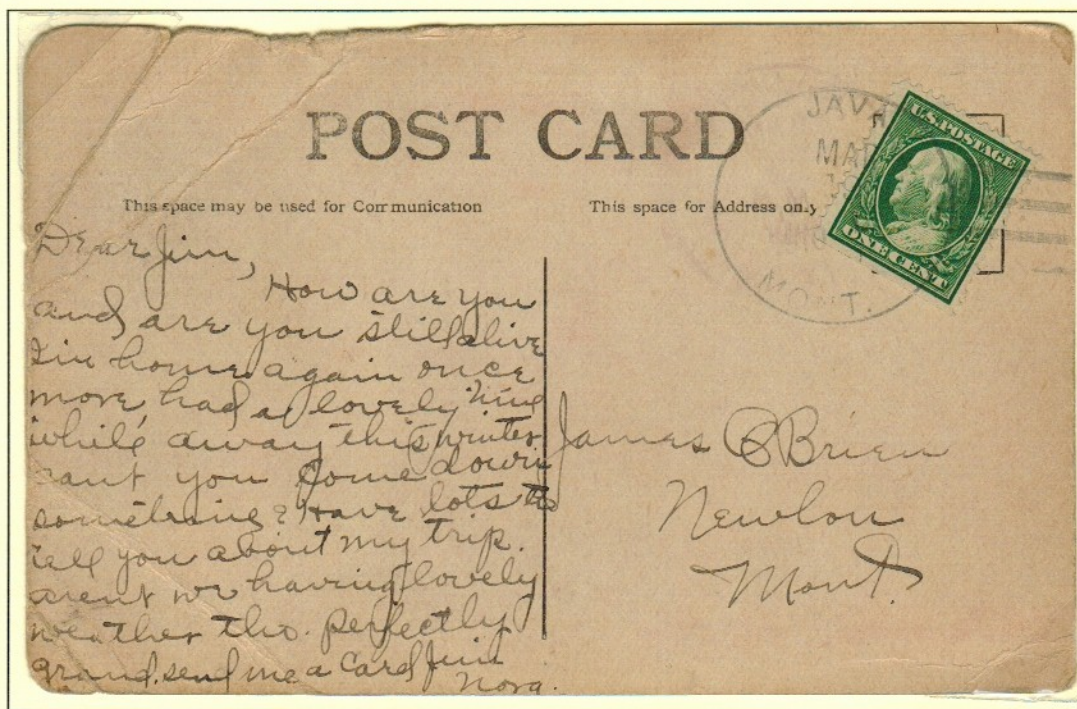 POST CARD
This space may be used for Communication
This space for Address only
JAVA
MAR
MONT.
U.S. POSTAGE
ONE CENT
Dear Jim,
How are you
and are you still alive
I'm home again once
more, had a lovely time
while away this winter
cant you come down
sometime? Have lots to
tell you about my trip.
arent we having lovely
weather tho. perfectly
grand. send me a card Jim
Nora.
James OBrien
Newlon
Mont.